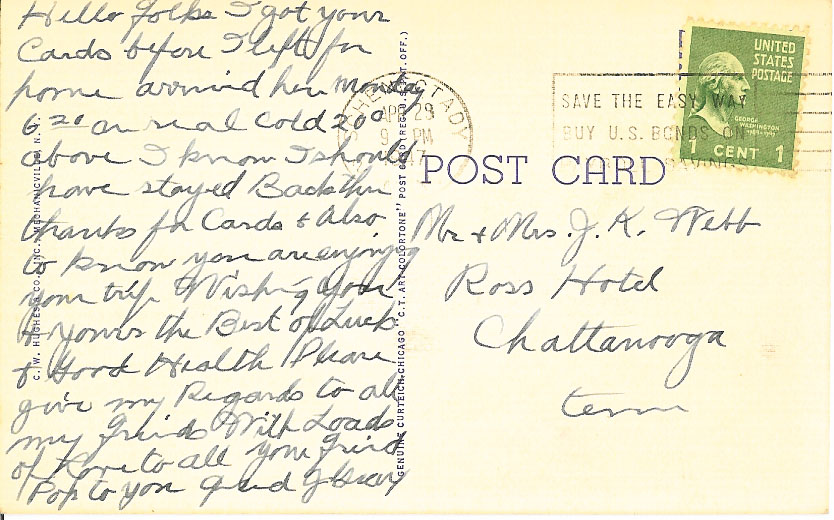 Hello folks I got your
Cards before I left for
home arrived here Monday
6 20 an real cold 200
above I know I should
have stayed Back thir
thanks for Cards & Also
to know you are enjoying
your trip Wishing you
& yours the Best of Luck
& Good Health Please
give my Regards to all
my Freinds With Loads
of Love to all your Freind
Pop to you
C. W. HUGHES & CO., INC., MECHANICVILLE, N. Y.
GENUINE CURTEICH-CHICAGO "C.T. ART-COLORTONE" POST CARD (REG. U.S. PAT. OFF.)
SCHENECTADY
APR 29
9 PM
SAVE THE EASY WAY
BUY U.S. BONDS ON
UNITED
STATES
POSTAGE
GEORGE
WASHINGTON
1 CENT 1
POST CARD
Mr & Mrs. J. K. Webb
Ross Hotel
Chattanooga
tenn